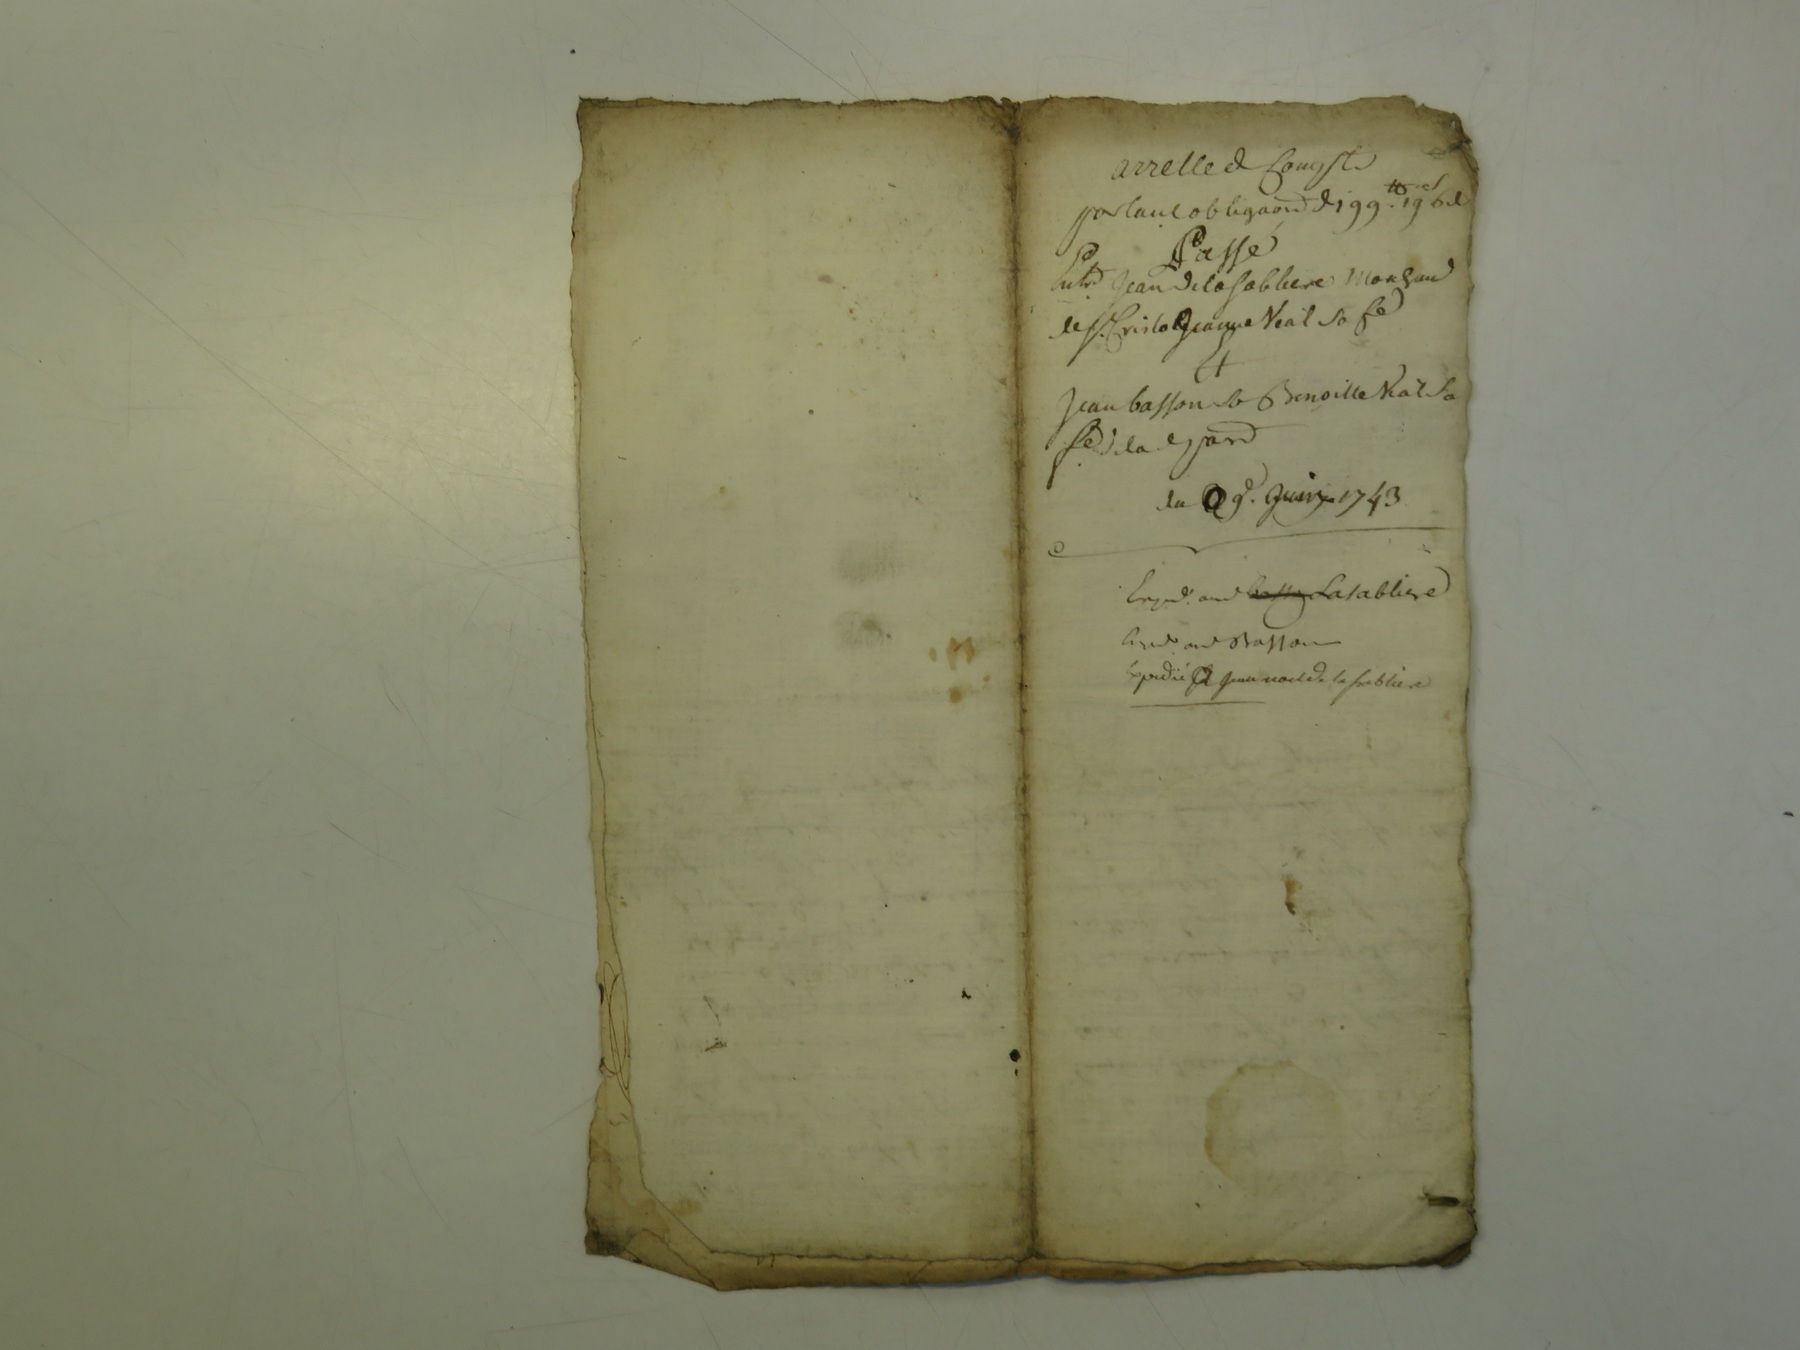 arrellé de Compte
portant obligaõn de 199tt 19s 6d
Passé
Entre Jean de la Sabliere Marchand
de St Cristo Jeanne Véal sa fe
Et
Jean basson de Benoitte Véal sa
fe de la part
du 9e. Juin 1743
Exped. aud Lasabliere
Exped. aud Basson
Expedié a Jean de la sabliere